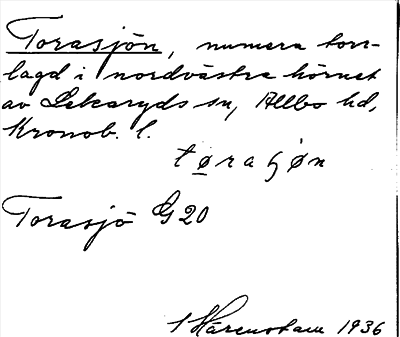 Torasjön, numera torr-
lagd i nordvästra hörnet
av Lekaryds sn, Allbo hd,
Kronob. l.
tøraɧøn
Torasjö G 20
S Härenstam 1936